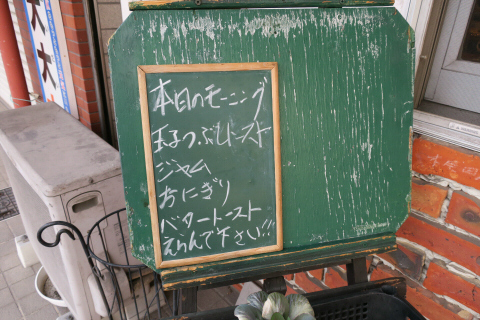 本日のモーニング
玉子つぶしトースト
ジャム
おにぎり
バタートースト
えらんで下さい!!